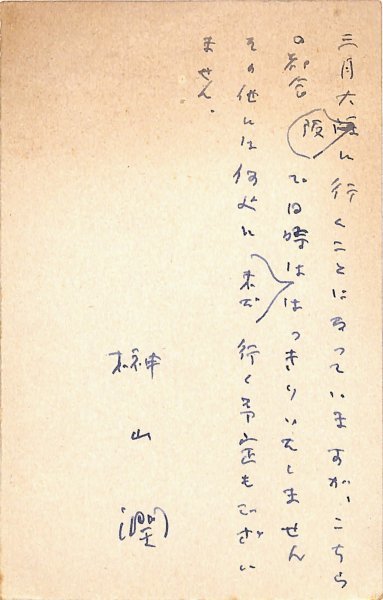 三月大阪に行くことになっていますが、こちら
の都合で日時ははっきりいたしません
その他には何処に未だ行く予定もござい
ません。
榊山潤